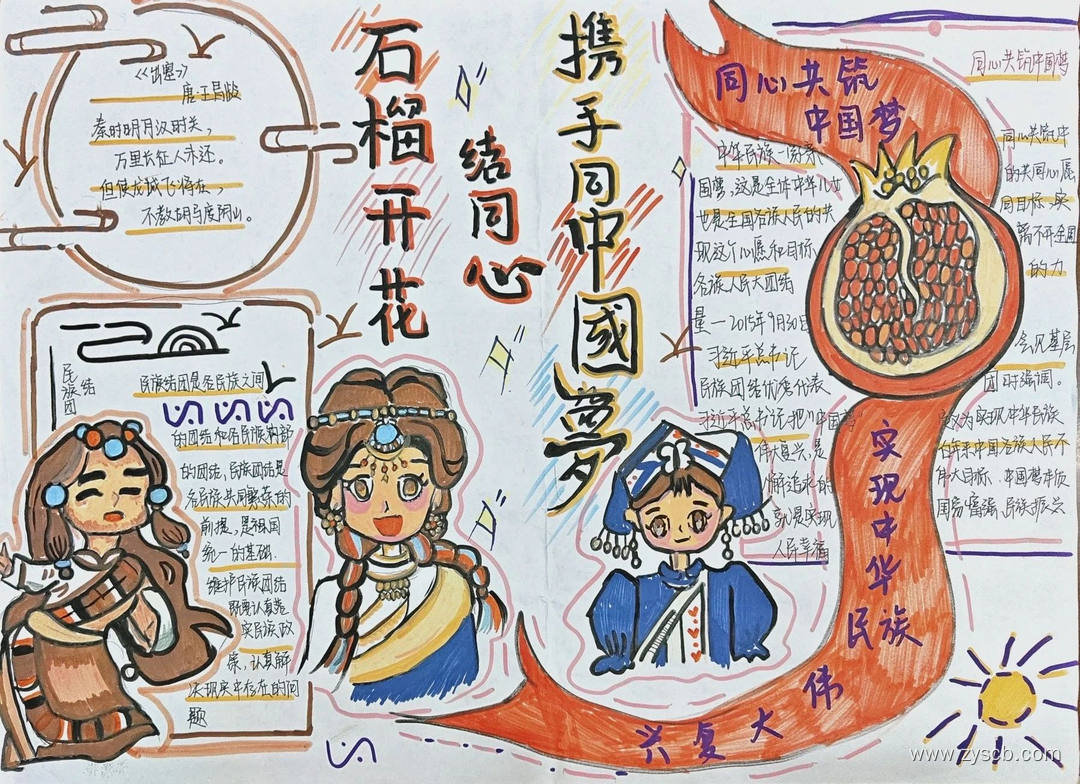 石榴开花
结同心
携手同中國夢
《出塞》
唐·王昌龄
秦时明月汉时关,
万里长征人未还。
但使龙城飞将在,
不教胡马度阴山。
民族
团结
民族结团是各民族之间
的团结和各民族内部
的团结,民族团结是
各民族共同繁荣的
前提,是祖国
统一的基础.
维护民族团结
既要认真落
实民族政
策,认真解
决现实中存在的问
题
同心共筑
中国梦
中华民族一家亲
国梦,这是全体中华儿女
也是全国各族人民的共
现这个心愿和目标
各族人民大团结
量一2015年9月30日
习近平总书记
民族团结优秀代表
习近平总书记把"中国梦"
伟大复兴,是
人民幸福
同心共筑中国梦
同心共筑中
的共同心愿,
同目标,实
离不开全国
的力
会见基层
团时强调。
定义为实现中华民族
百年来中国各族人民不
伟大目标、中国梦本质
国家富强、民族振兴
实现中华民族
伟大复兴
www.zyscb.com